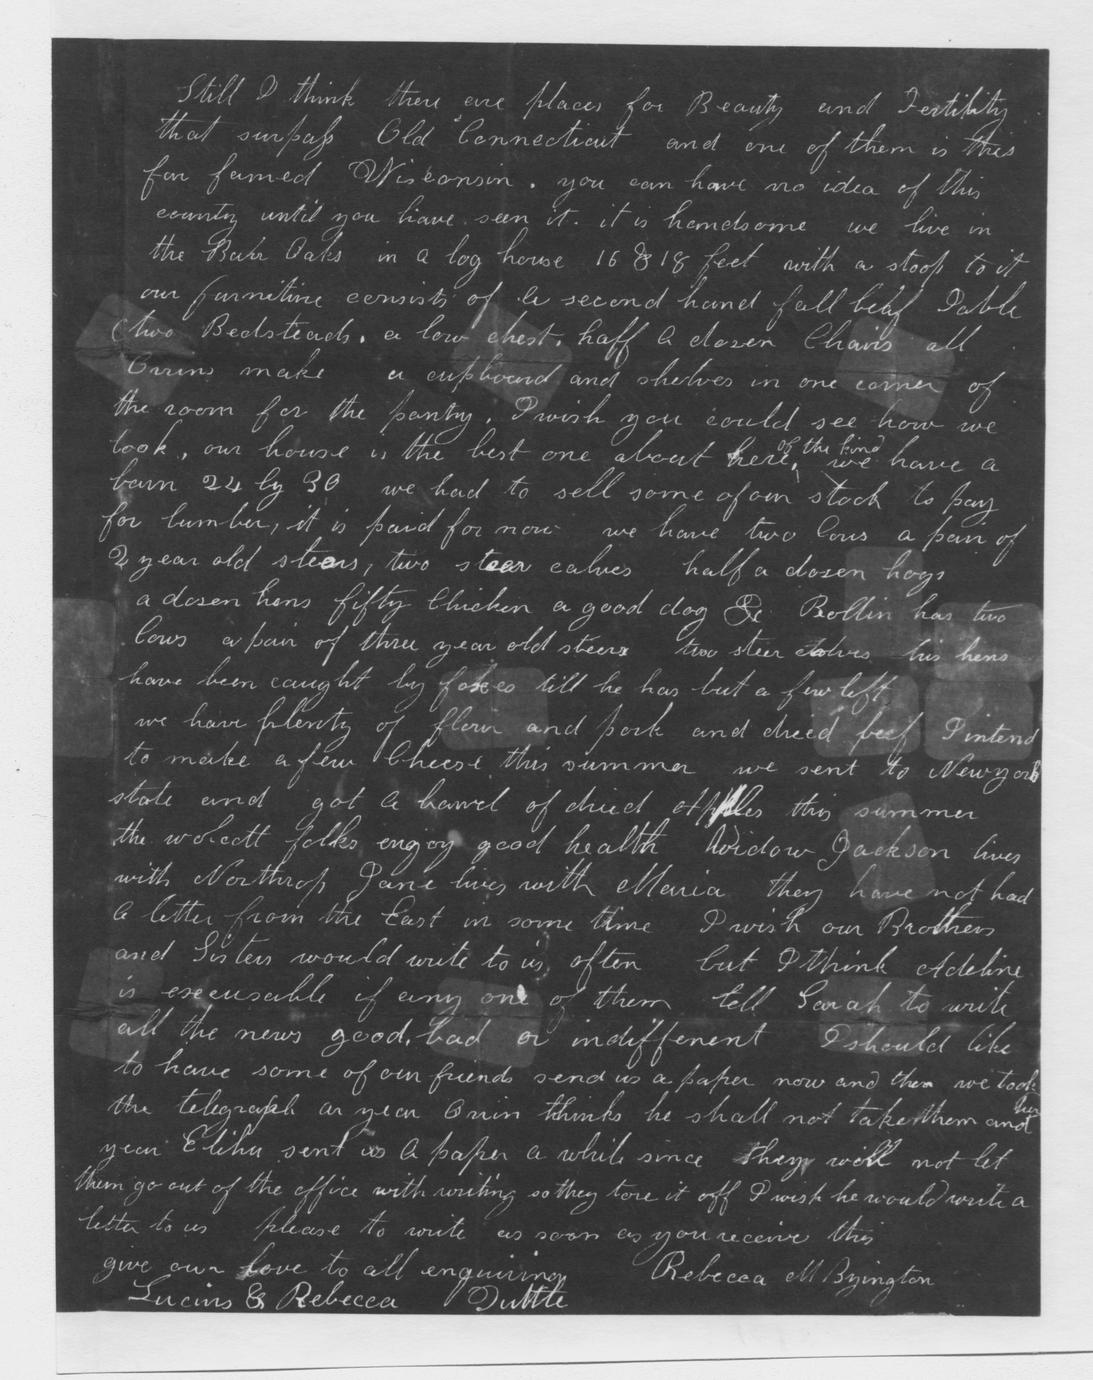 Still I think there are places for Beauty and Fertility
that surpass Old Connecticut and one of them is this
far famed Wisconsin. you can have no idea of this
country until you have seen it. it is handsome we live in
the Burr Oaks in a log house 16 & 18 feet with a stoop to it
our furniture consists of a second hand fall leaf Table
two Bedsteads. a low chest. half a dozen Chairs all
Orrins make a cupboard and shelves in one corner of
the room for the pantry. I wish you could see how we
look, our house is the best one about here, of the kind we have a
barn 24 by 30 we had to sell some of our stock to pay
for lumber, it is paid for now we have two Cows a pair of
2 year old steers, two steer calves half a dozen hogs
a dozen hens fifty Chicken a good dog &c Rollin has two
Cows a pair of three year old steers two steer calves his hens
have been caught by foxes till he has but a few left
we have plenty of flour and pork and dried beef I intend
to make a few Cheese this summer we sent to Newyork
state and got a barrel of dried apples this summer
the wolcott folks enjoy good health Widow Jackson lives
with Northrop Jane lives with Maria they have not had
a letter from the East in some time I wish our Brothers
and Sisters would write to us often but I think Adeline
is excusable if any one of them tell Sarah to write
all the news good, bad or indifferent I should like
to have some of our friends send us a paper now and then we took
the telegraph a year Orrin thinks he shall not take them another
year Elihu sent us a paper a while since they will not let
them go out of the office with writing so they tore it off I wish he would write a
letter to us please to write as soon as you receive this
give our love to all enquiring Rebecca M Byington
Lucius & Rebecca Tuttle